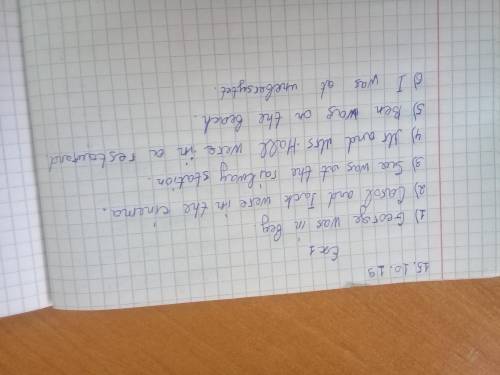 15.10.19
Ex 1
1) George was in bey.
2) Carol and Jack were in the cinema.
3) Sea was at the railway station.
4) Mr and Mrs. Hall were in a restaurand.
5) Ben was on the beach.
6) I was at unebersytet.